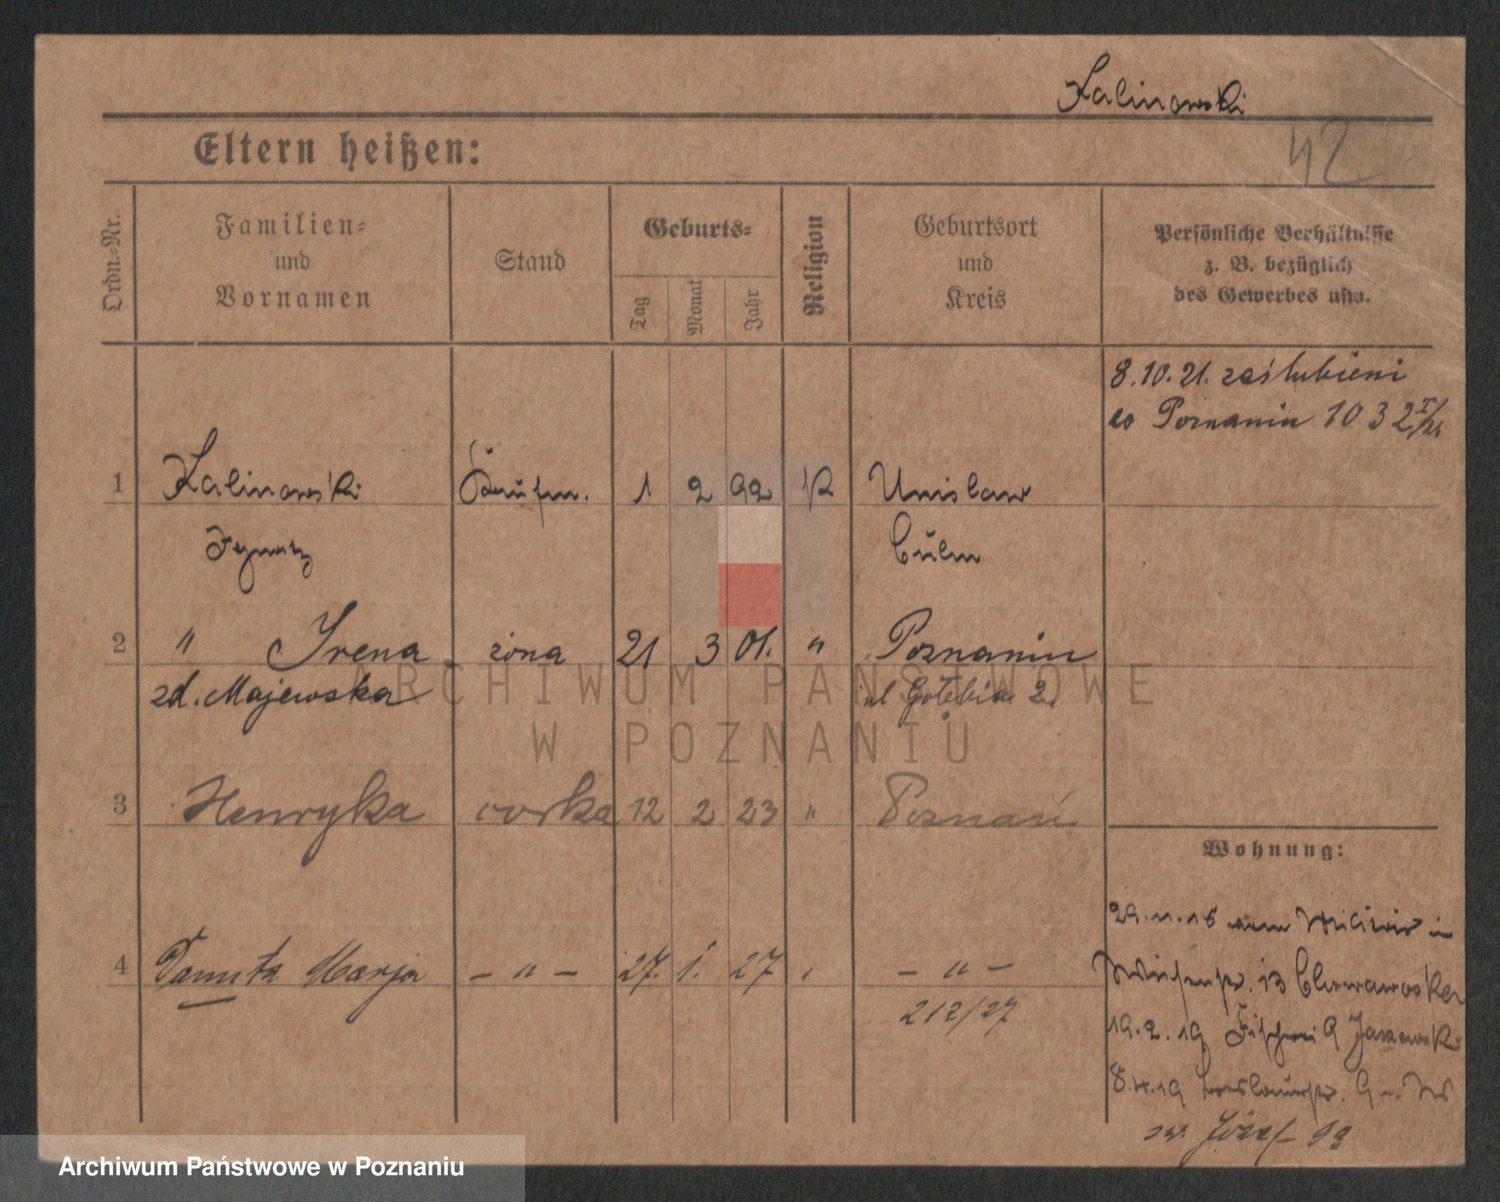 Kalinowski
42
Eltern heißen:
Ordn.-Nr.
Familien-
und
Vornamen
Stand
Geburts-
Tag
Monat
Jahr
Religion
Geburtsort
und
Kreis
Persönliche Verhältnisse
z. B. bezüglich
des Gewerbes usw.
8.10.21. zaślubieni
w Poznaniu 1032
1 Kalinowski Kaufm. 1 2 92 K Unislaw
Ignatz Culm
2 " Irena żona 21 3 01. " Poznaniu
zd. Majewska ul Gołębia 2.
3 Henryka corka 12 2 23 " Poznań
Wohnung:
4 Danuta Marja – " – 27. 1. 27 – " –
212/27
29.11.18 vom Militär in
Wiesenstr. 13
19.2.19 Fischerei 9 Jaszewski
8.4.19
św. Józef
ARCHIWUM PAŃSTWOWE
W POZNANIU
Archiwum Państwowe w Poznaniu